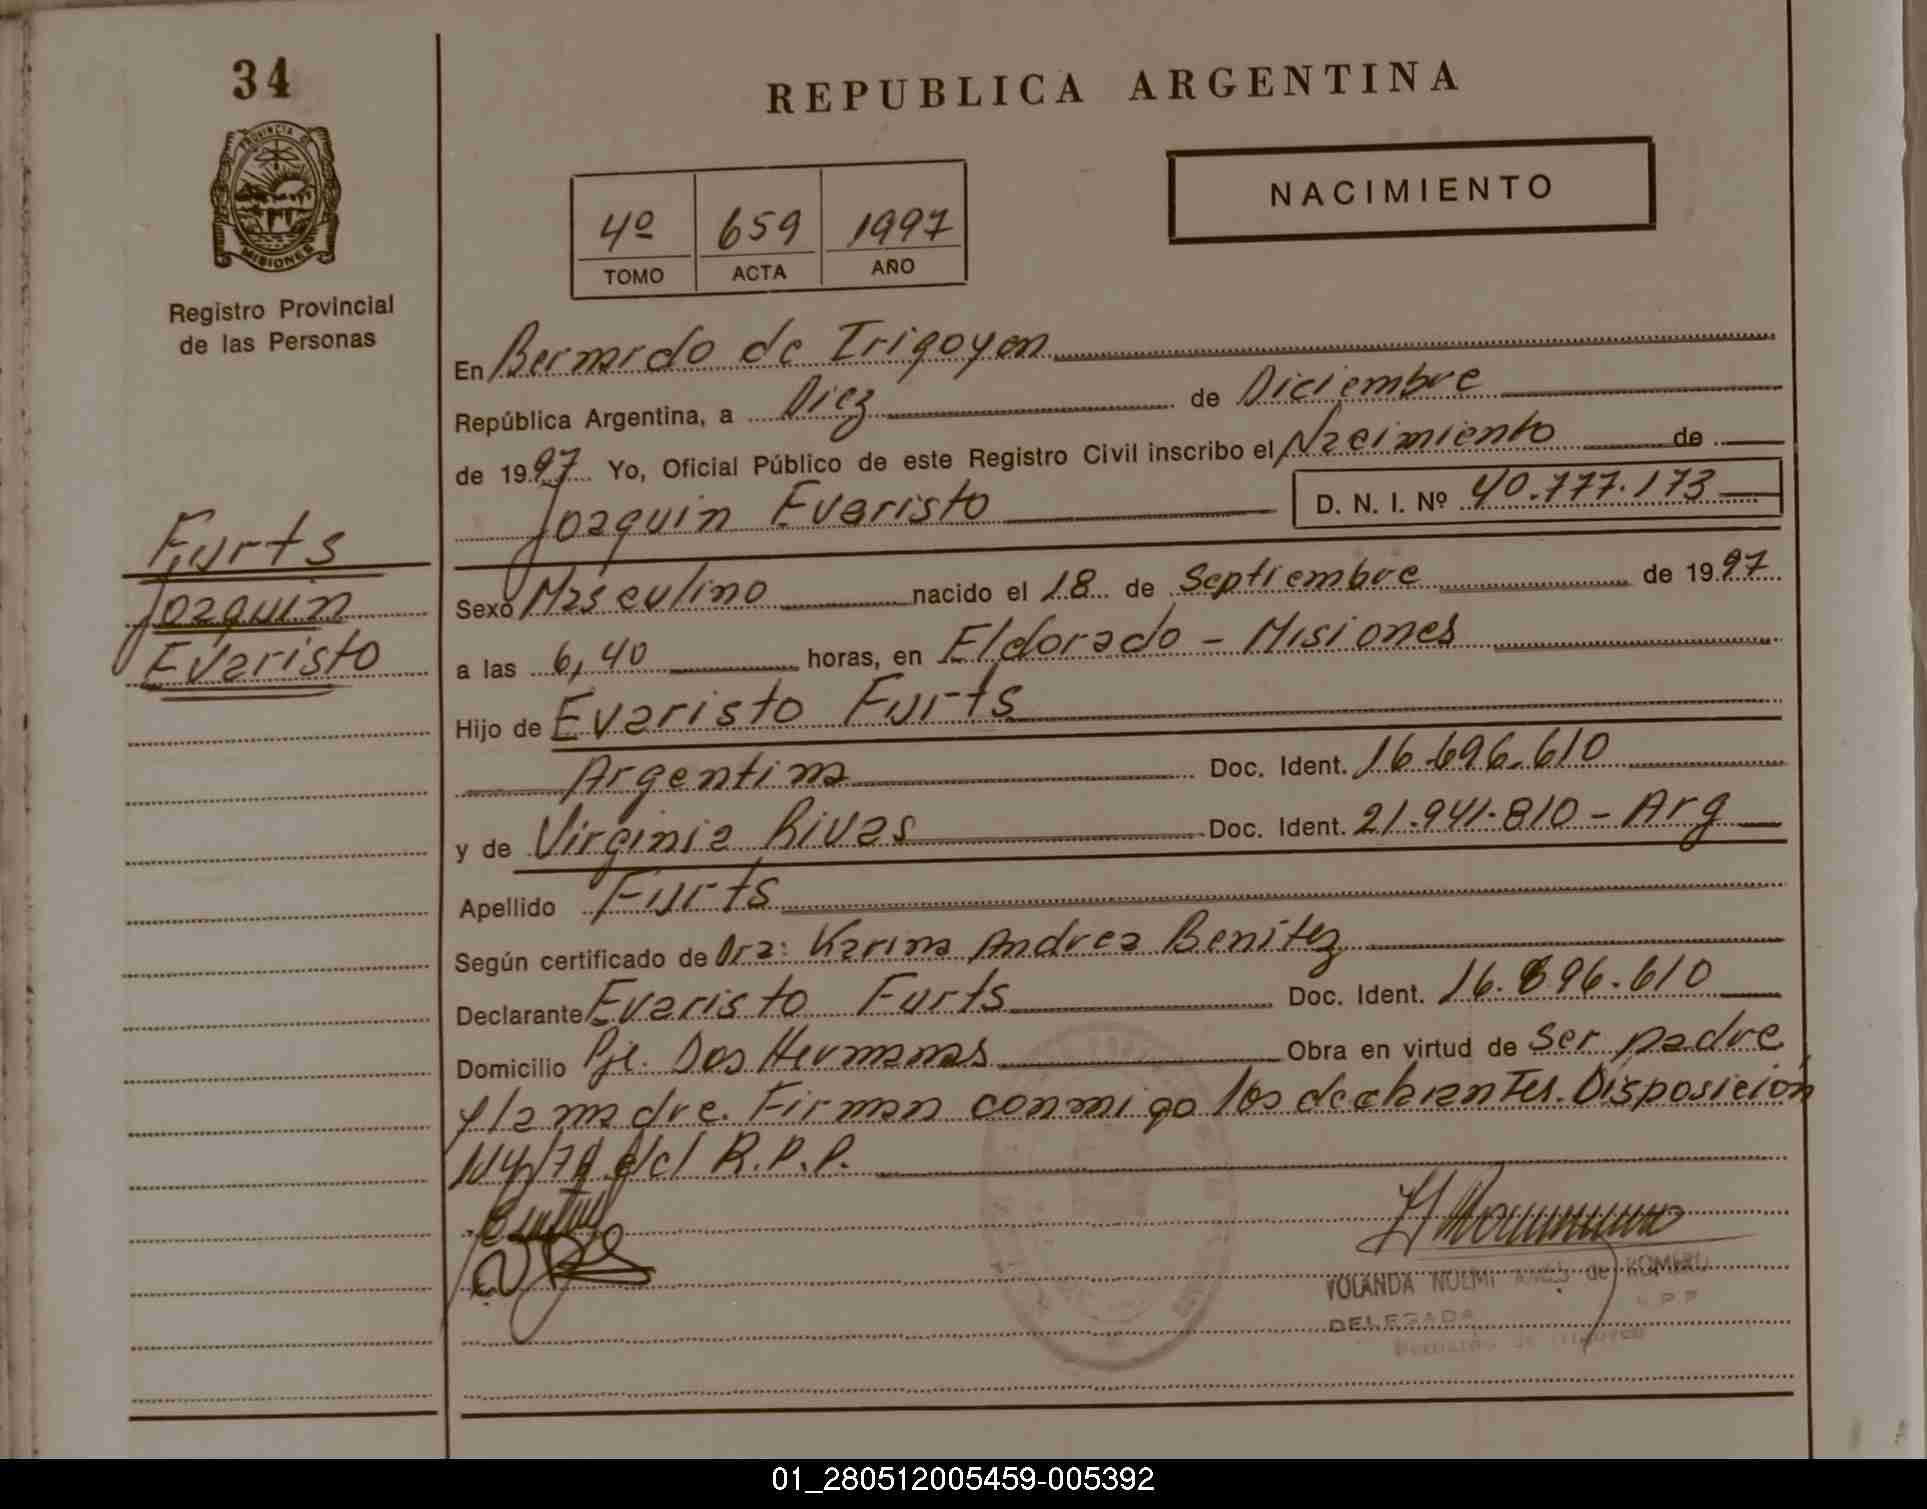 34
REPUBLICA ARGENTINA
PROVINCIA DE
MISIONES
NACIMIENTO
4º 659 1997
TOMO ACTA AÑO
Registro Provincial
de las Personas
En Bernardo de Irigoyen
República Argentina, a Diez de Diciembre
de 1997 Yo, Oficial Público de este Registro Civil inscribo el Nacimiento de
Joaquin Evaristo D. N. I. Nº 40.777.173
Furts
Joaquin
Evaristo
Sexo Masculino nacido el 18 de Septiembre de 1997
a las 6,40 horas, en Eldorado - Misiones
Hijo de Evaristo Furts
Argentina Doc. Ident. 16.696.610
y de Virginia Rivas Doc. Ident. 21.941.810 - Arg
Apellido Furts
Según certificado de Dra: Karina Andrea Benitez
Declarante Evaristo Furts Doc. Ident. 16.696.610
Domicilio Pje. Dos Hermanas Obra en virtud de ser padre
y la madre. Firman conmigo los declarantes. Disposición
del R.P.P.
YOLANDA NOEMI de ROMERO
DELEGADA
01_280512005459-005392